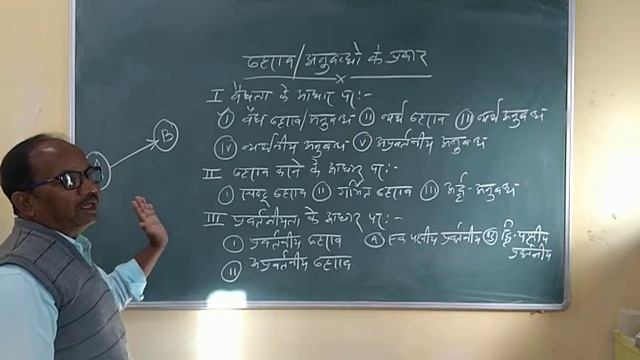 ठहराव/अनुबन्धों के प्रकार
I वैधता के आधार पर:-
(i) वैध ठहराव/अनुबंध (ii) व्यर्थ ठहराव (iii) व्यर्थ अनुबंध
(iv) व्यर्थनीय अनुबंध (v) अप्रवर्तनीय अनुबंध
II ठहराव करने के आधार पर:-
(i) स्पष्ट ठहराव (ii) गर्भित ठहराव (iii) अर्द्ध-अनुबंध
III प्रवर्तनीयता के आधार पर:-
(i) प्रवर्तनीय ठहराव (A) एक पक्षीय प्रवर्तनीय (B) द्वि-पक्षीय
प्रवर्तनीय
(ii) अप्रवर्तनीय ठहराव
A
B